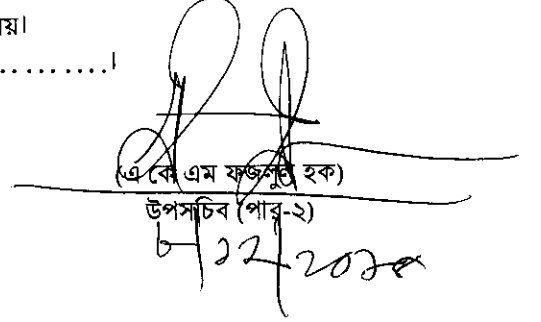 য়।
..........।
(এ কে এম ফজলুল হক)
উপসচিব (পার-২)